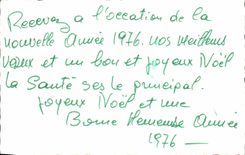 Recevez a l'occation de la
nouvelle Année 1976. nos meilleurs
vœux et un bon et joyeux Noël
la Santé ses le principal.
joyeux Noël et une
Bonne Heureuse Année
1976 —